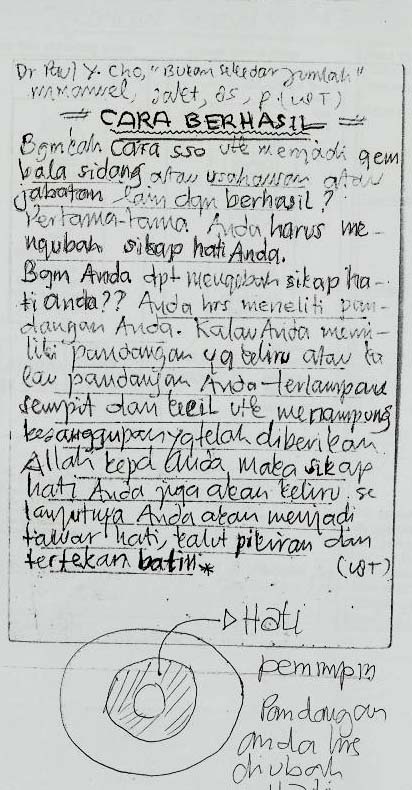 Dr Paul Y. Cho, "Bukan sekedar Jumlah"
Immanuel, Jakt, 85, p. (WT)
= CARA BERHASIL =
Bgmcah cara sso utk menjadi gem
bala sidang atau usahawan atau
jabatan lain dgn berhasil?
Pertama-tama Anda harus me-
ngubah sikap hati Anda.
Bgm Anda dpt mengubah sikap ha-
ti anda?? Anda hrs meneliti pan-
dangan Anda. Kalau Anda memi-
liki pandangan yg keliru atau ka
lau pandangan Anda terlampau
sempit dan kecil utk menampung
kesanggupan yg telah diberikan
Allah kepd Anda, maka sikap
hati Anda juga akan keliru. se
lanjutnya Anda akan menjadi
tawar hati, kalut pikiran dan
tertekan batin.*
(WT)
Hati
pemimpin
Pandangan
anda hrs
diubah
Hati